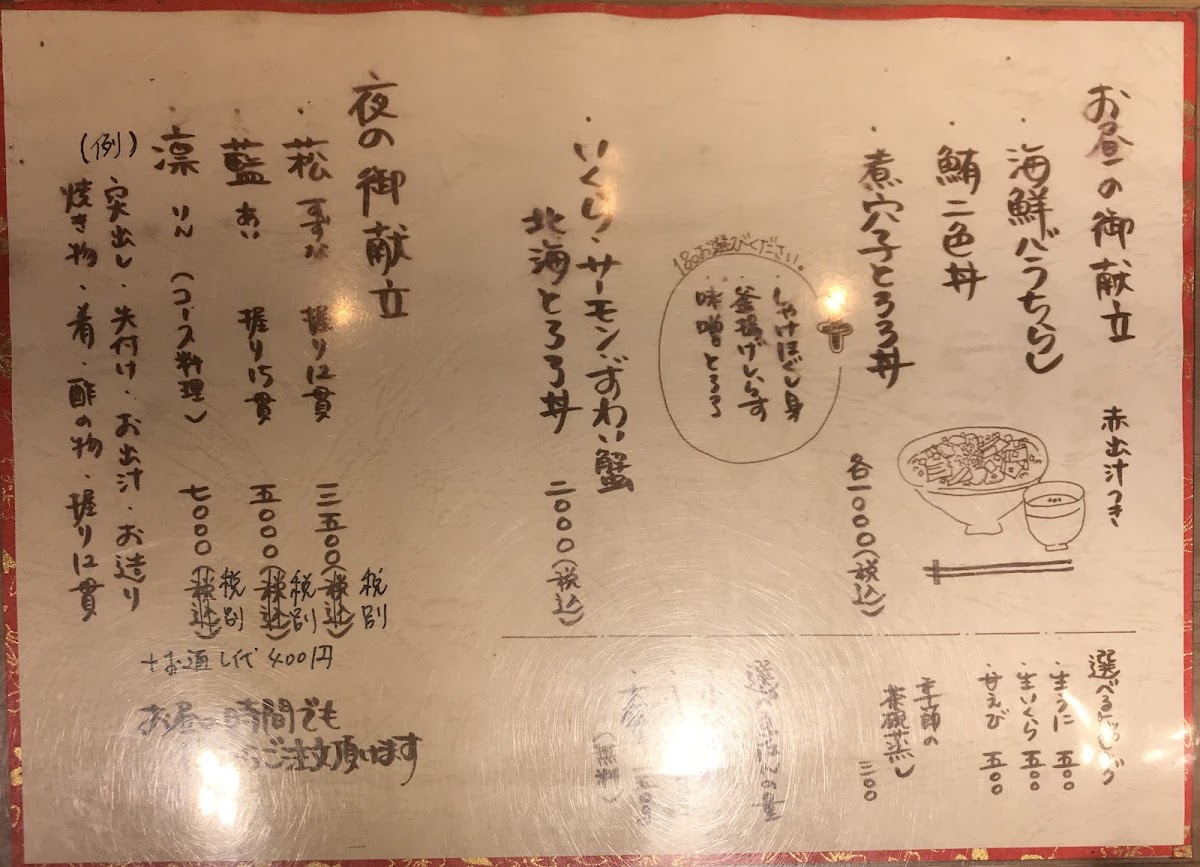 お昼の御献立 赤出汁つき
・海鮮バラちらし
・鮪二色丼
・煮穴子とろろ丼 各一〇〇〇(税込)
1品お選びください。
・しゃけほぐし身
・釜揚げしらす
・味噌とろろ
・いくら・サーモン・ずわい蟹
北海とろろ丼 二〇〇〇(税込)
選べるトッピング
・生うに 五〇〇
・生いくら 五〇〇
・甘えび 五〇〇
季節の
茶碗蒸し 三〇〇
(無料)
夜の御献立
・菘 すずな 握り12貫 三五〇〇(税込) 税別
・藍 あい 握り15貫 五〇〇〇(税込) 税別
・凛 りん (コース料理) 七〇〇〇(税込) 税別
(例) 突出し・先付け・お出汁・お造り
焼き物・肴・酢の物・握り12貫
+お通し代 400円
お昼の時間でも
ご注文頂けます